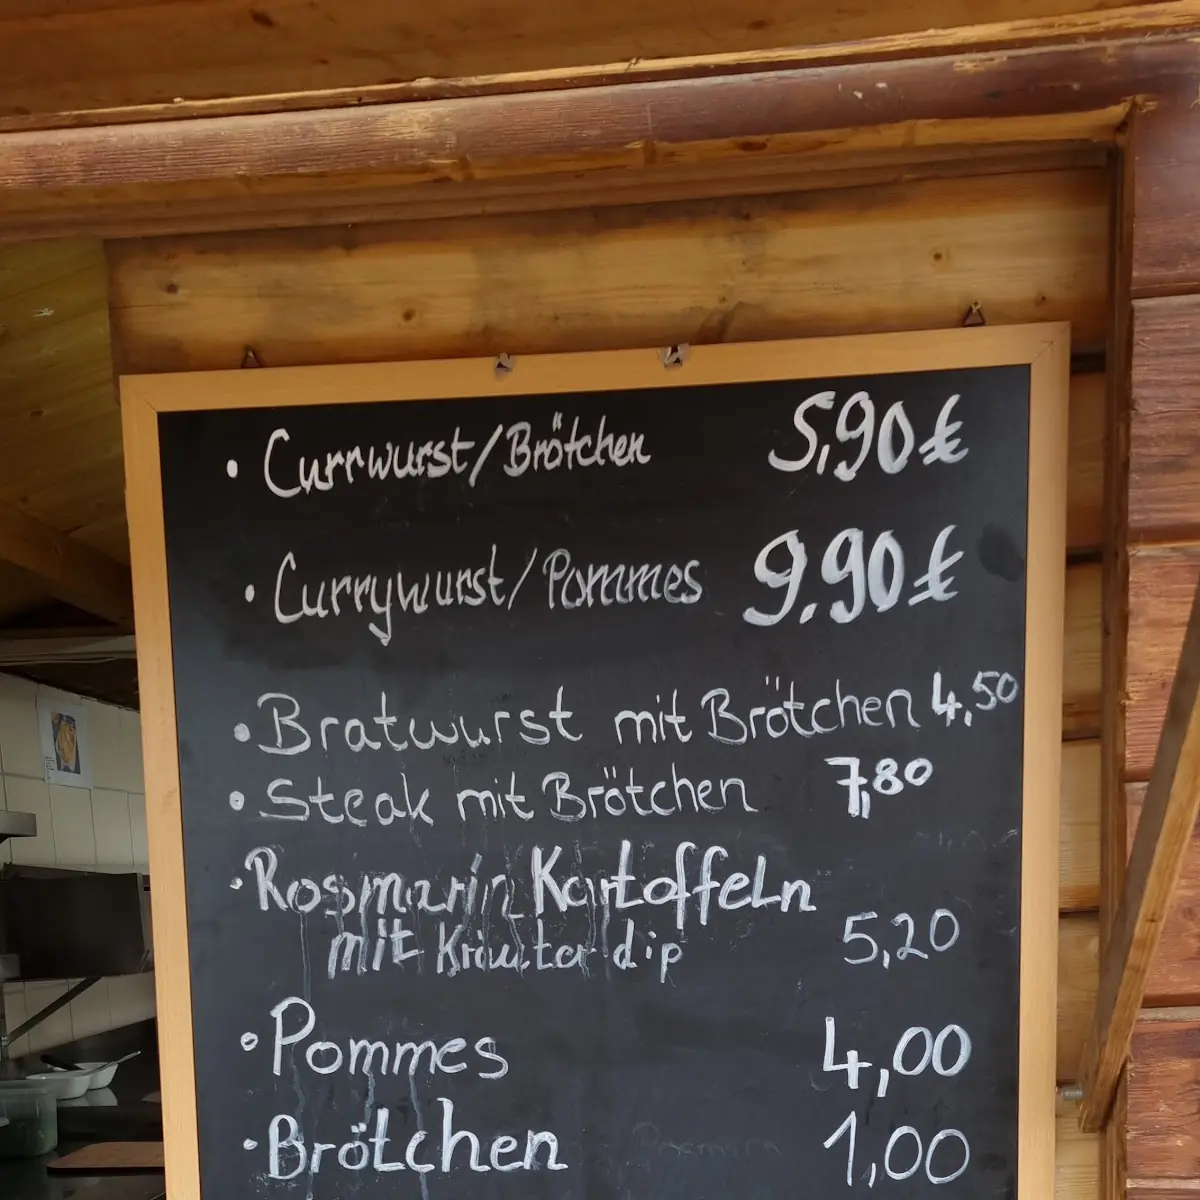 • Currwurst/Brötchen 5,90 €
• Currywurst/Pommes 9.90 €
• Bratwurst mit Brötchen 4,50
• Steak mit Brötchen 7,80
• Rosmarin Kartoffeln
mit Kräuter dip 5,20
• Pommes 4,00
• Brötchen 1,00